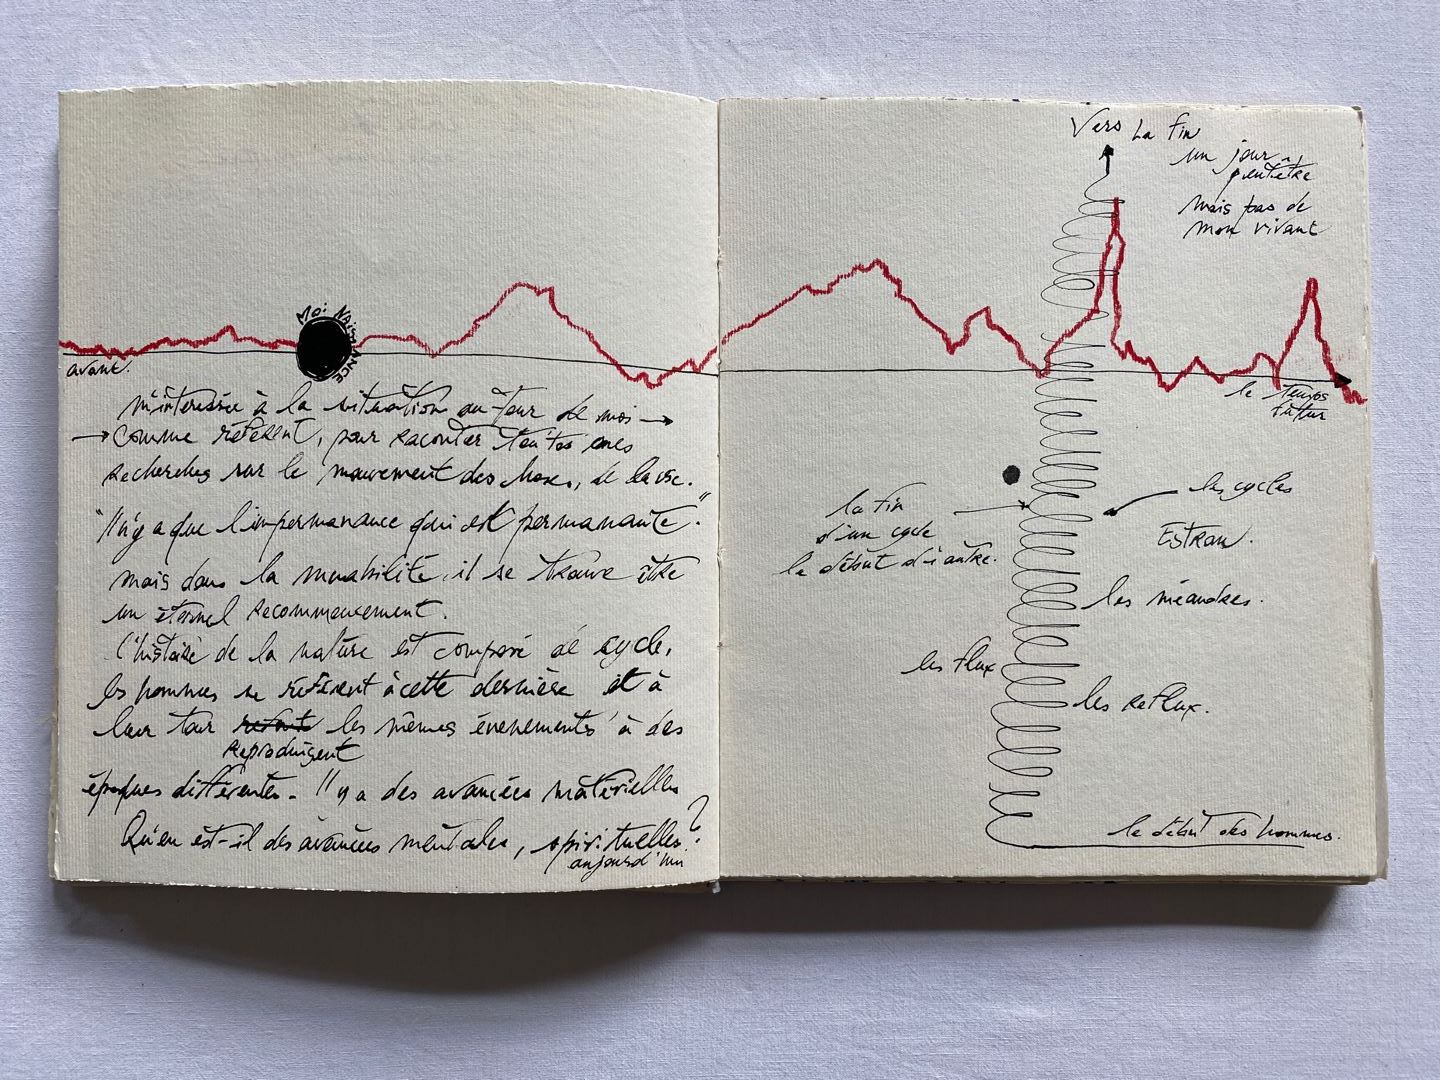 Moi NAISSANCE
avant.
m'intéresser à la situation au-tour de moi →
→ comme référent, pour raconter toutes mes
recherches sur le mouvement des choses, de la vie.
"Il n'y a que l'impermanance qui est permanante."
mais dans la muabilité, il se trouve être
un éternel recommencement.
L'histoire de la nature est composé de cycle,
les hommes se réfèrent à cette dernière et à
leur tour les mêmes évenements à des
reproduisent
époques différentes. Il y a des avancées matérielles
Qu'en est-il des avancées mentales, spirituelles ?
aujourd'hui
Vers La fin
un jour
peut être
mais pas de
mon vivant
le Temps
futur
les cycles
la fin
d'un cycle
le début d'1 autre.
Estran.
les méandres.
les flux
les reflux.
le début des hommes.